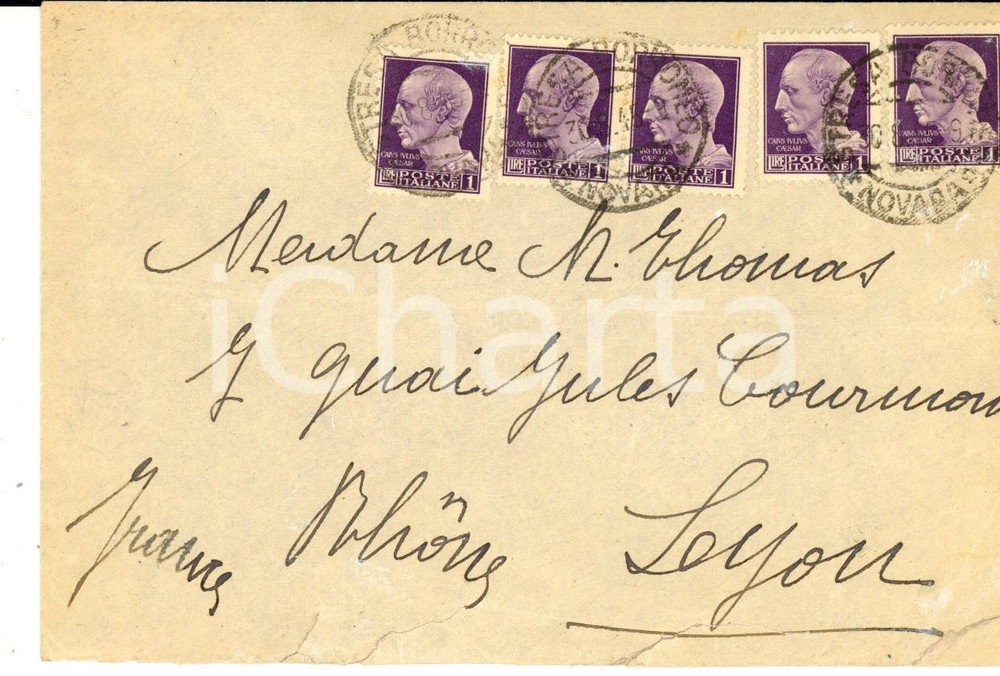 STRESA BORROMEO
NOVARA
CAIVS IVLIVS CÆSAR
LIRE POSTE ITALIANE 1
CAIVS IVLIVS CÆSAR
LIRE POSTE ITALIANE 1
CAIVS IVLIVS CÆSAR
LIRE POSTE ITALIANE 1
CAIVS IVLIVS CÆSAR
LIRE POSTE ITALIANE 1
CAIVS IVLIVS CÆSAR
LIRE POSTE ITALIANE 1
Madame M. Thomas
iCharta
7 quai Jules Courmon
France Rhône Lyon